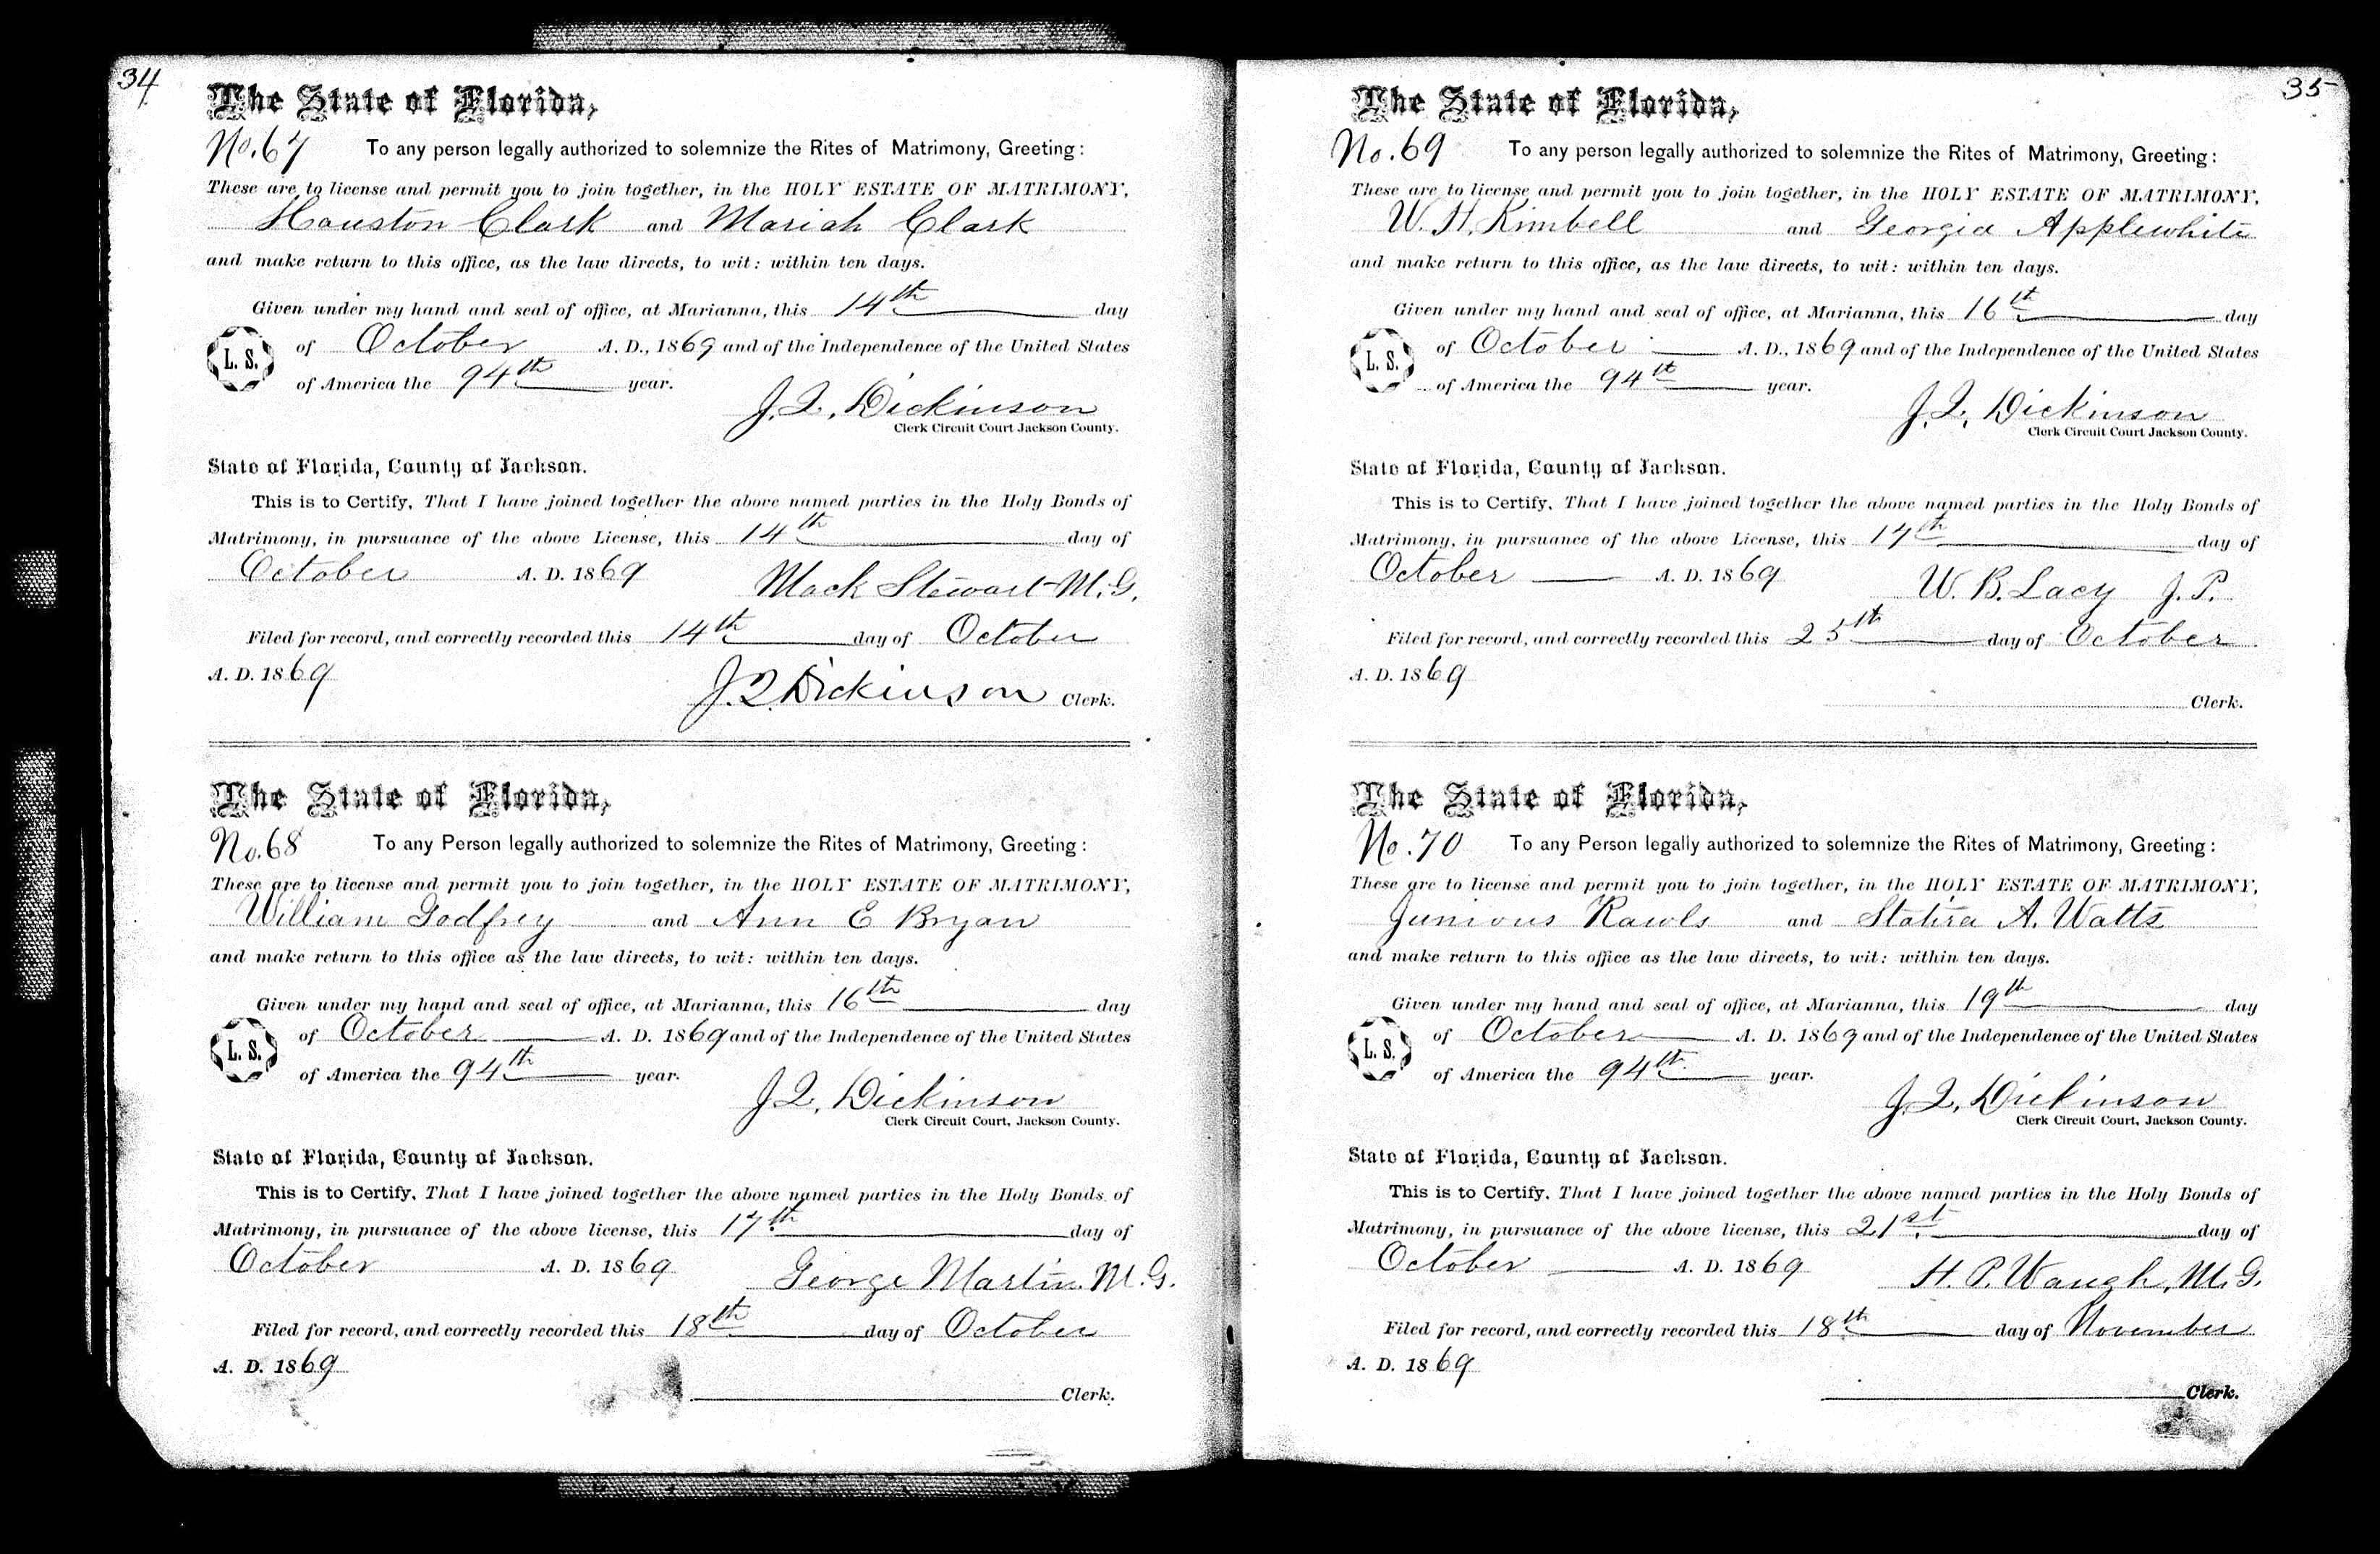 34
The State of Florida,
No. 67 To any person legally authorized to solemnize the Rites of Matrimony, Greeting:
These are to license and permit you to join together, in the HOLY ESTATE OF MATRIMONY,
Houston Clark and Mariah Clark
and make return to this office, as the law directs, to wit: within ten days.
Given under my hand and seal of office, at Marianna, this 14th day
L. S. of October A. D., 1869 and of the Independence of the United States
of America the 94th year.
J. Q. Dickinson
Clerk Circuit Court Jackson County.
State of Florida, County of Jackson.
This is to Certify, That I have joined together the above named parties in the Holy Bonds of
Matrimony, in pursuance of the above License, this 14th day of
October A. D. 1869 Mack Stewart M. G.
Filed for record, and correctly recorded this 14th day of October
A. D. 1869
J. Q. Dickinson Clerk.
The State of Florida,
No. 68 To any Person legally authorized to solemnize the Rites of Matrimony, Greeting:
These are to license and permit you to join together, in the HOLY ESTATE OF MATRIMONY,
William Godfrey and Ann E Bryan
and make return to this office as the law directs, to wit: within ten days.
Given under my hand and seal of office, at Marianna, this 16th day
L. S. of October A. D. 1869 and of the Independence of the United States
of America the 94th year.
J. Q. Dickinson
Clerk Circuit Court, Jackson County.
State of Florida, County of Jackson.
This is to Certify, That I have joined together the above named parties in the Holy Bonds of
Matrimony, in pursuance of the above license, this 17th day of
October A. D. 1869 George Martin M. G.
Filed for record, and correctly recorded this 18th day of October
A. D. 1869
Clerk.
35
The State of Florida,
No. 69 To any person legally authorized to solemnize the Rites of Matrimony, Greeting:
These are to license and permit you to join together, in the HOLY ESTATE OF MATRIMONY,
W. H. Kimbell and Georgia Applewhite
and make return to this office, as the law directs, to wit: within ten days.
Given under my hand and seal of office, at Marianna, this 16th day
L. S. of October A. D., 1869 and of the Independence of the United States
of America the 94th year.
J. Q. Dickinson
Clerk Circuit Court Jackson County.
State of Florida, County of Jackson.
This is to Certify, That I have joined together the above named parties in the Holy Bonds of
Matrimony, in pursuance of the above License, this 17th day of
October A. D. 1869 W. B. Lacy J. P.
Filed for record, and correctly recorded this 25th day of October
A. D. 1869
Clerk.
The State of Florida,
No. 70 To any Person legally authorized to solemnize the Rites of Matrimony, Greeting:
These are to license and permit you to join together, in the HOLY ESTATE OF MATRIMONY,
Junious Rawls and Statira A. Watts
and make return to this office as the law directs, to wit: within ten days.
Given under my hand and seal of office, at Marianna, this 19th day
L. S. of October A. D. 1869 and of the Independence of the United States
of America the 94th year.
J. Q. Dickinson
Clerk Circuit Court, Jackson County.
State of Florida, County of Jackson.
This is to Certify, That I have joined together the above named parties in the Holy Bonds of
Matrimony, in pursuance of the above license, this 21st day of
October A. D. 1869 H. P. Waugh, M. G.
Filed for record, and correctly recorded this 18th day of November
A. D. 1869
Clerk.